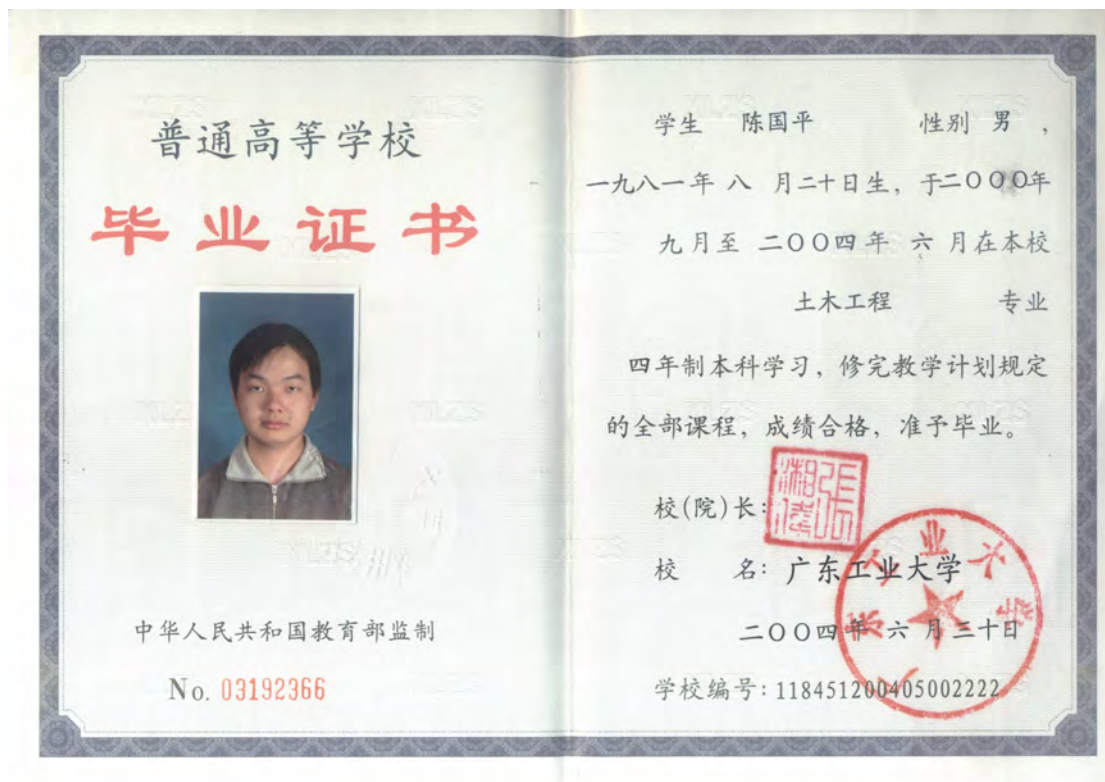 普通高等学校
毕业证书
中华人民共和国教育部监制
No. 03192366
学生 陈国平 性别 男 ，
一九八一年 八 月二十日生，于二〇〇〇年
九月至 二〇〇四年 六 月在本校
土木工程 专业
四年制本科学习，修完教学计划规定
的全部课程，成绩合格，准予毕业。
校(院)长：
校 名：广东工业大学
二〇〇四年 六 月三十日
学校编号：118451200405002222
广东工业大学